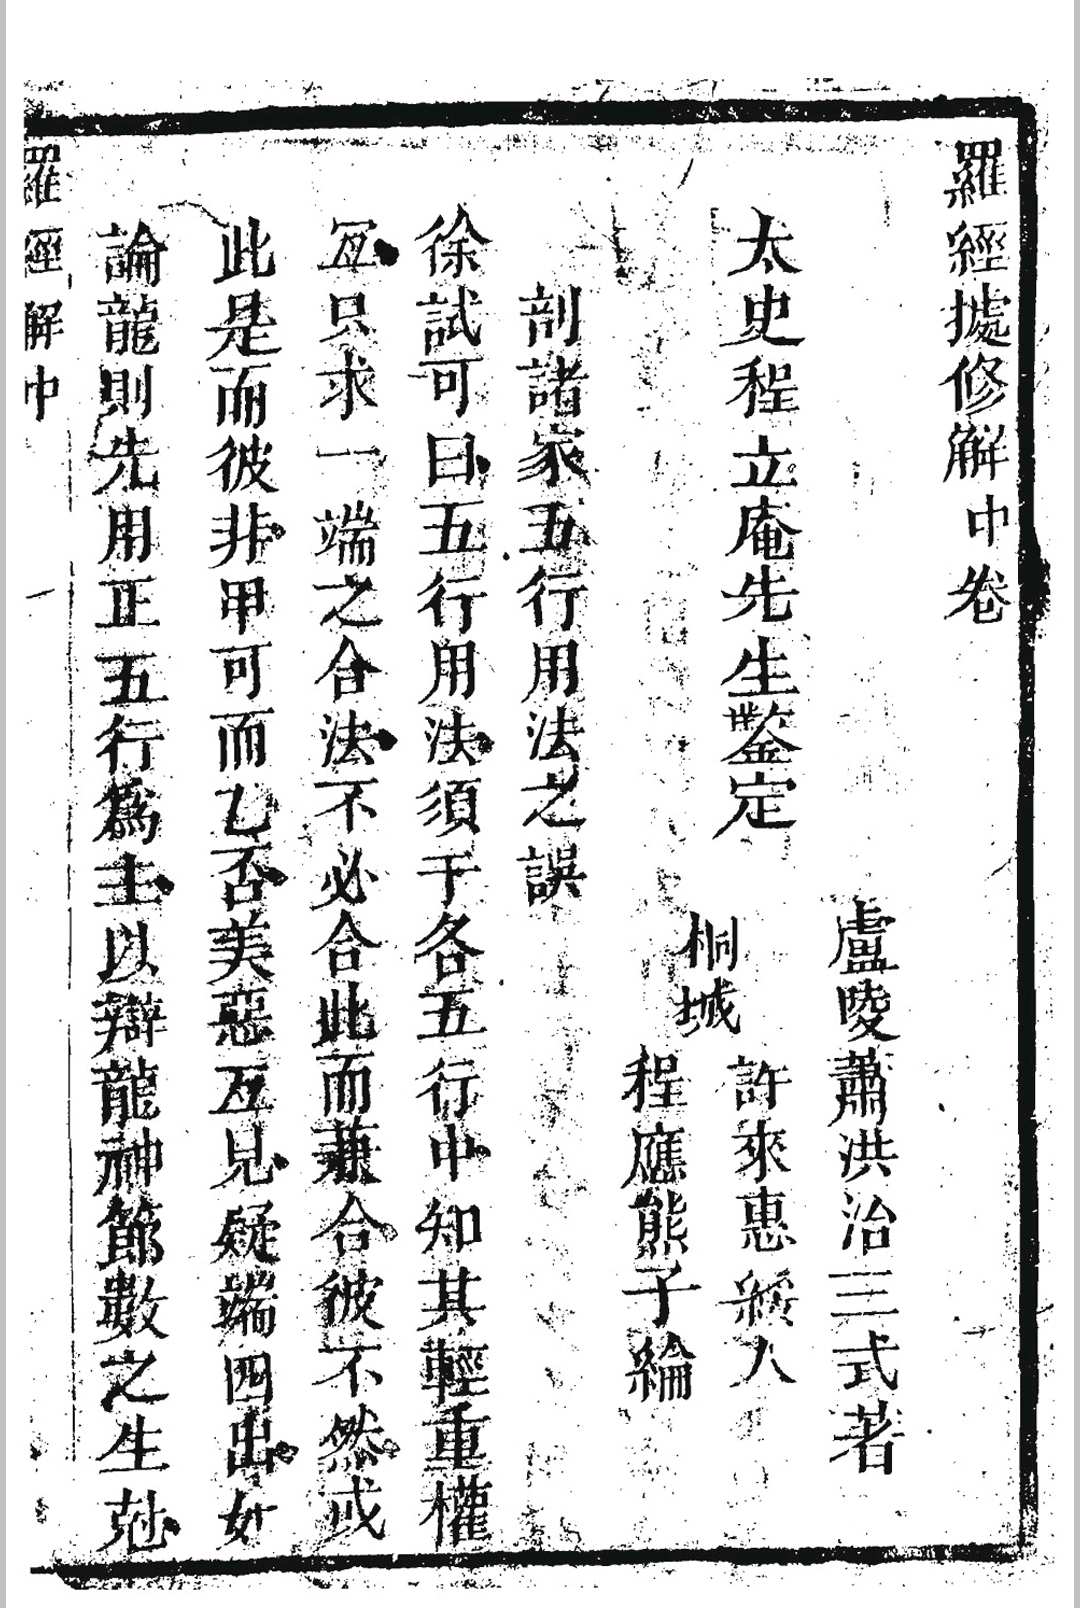 羅經據修解中卷
盧陵蕭洪治三式著
太史程立庵先生鑒定
桐城
許來惠綏人
程應熊子綸
剖諸家五行用法之誤
徐試可曰五行用法須于各五行中知其輕重權
冝只求一端之合法不必合此而兼合彼不然或
此是而彼非甲可而乙否美惡互見疑端四出如
論龍則先用正五行爲主以辯龍神節數之生尅
羅經解中